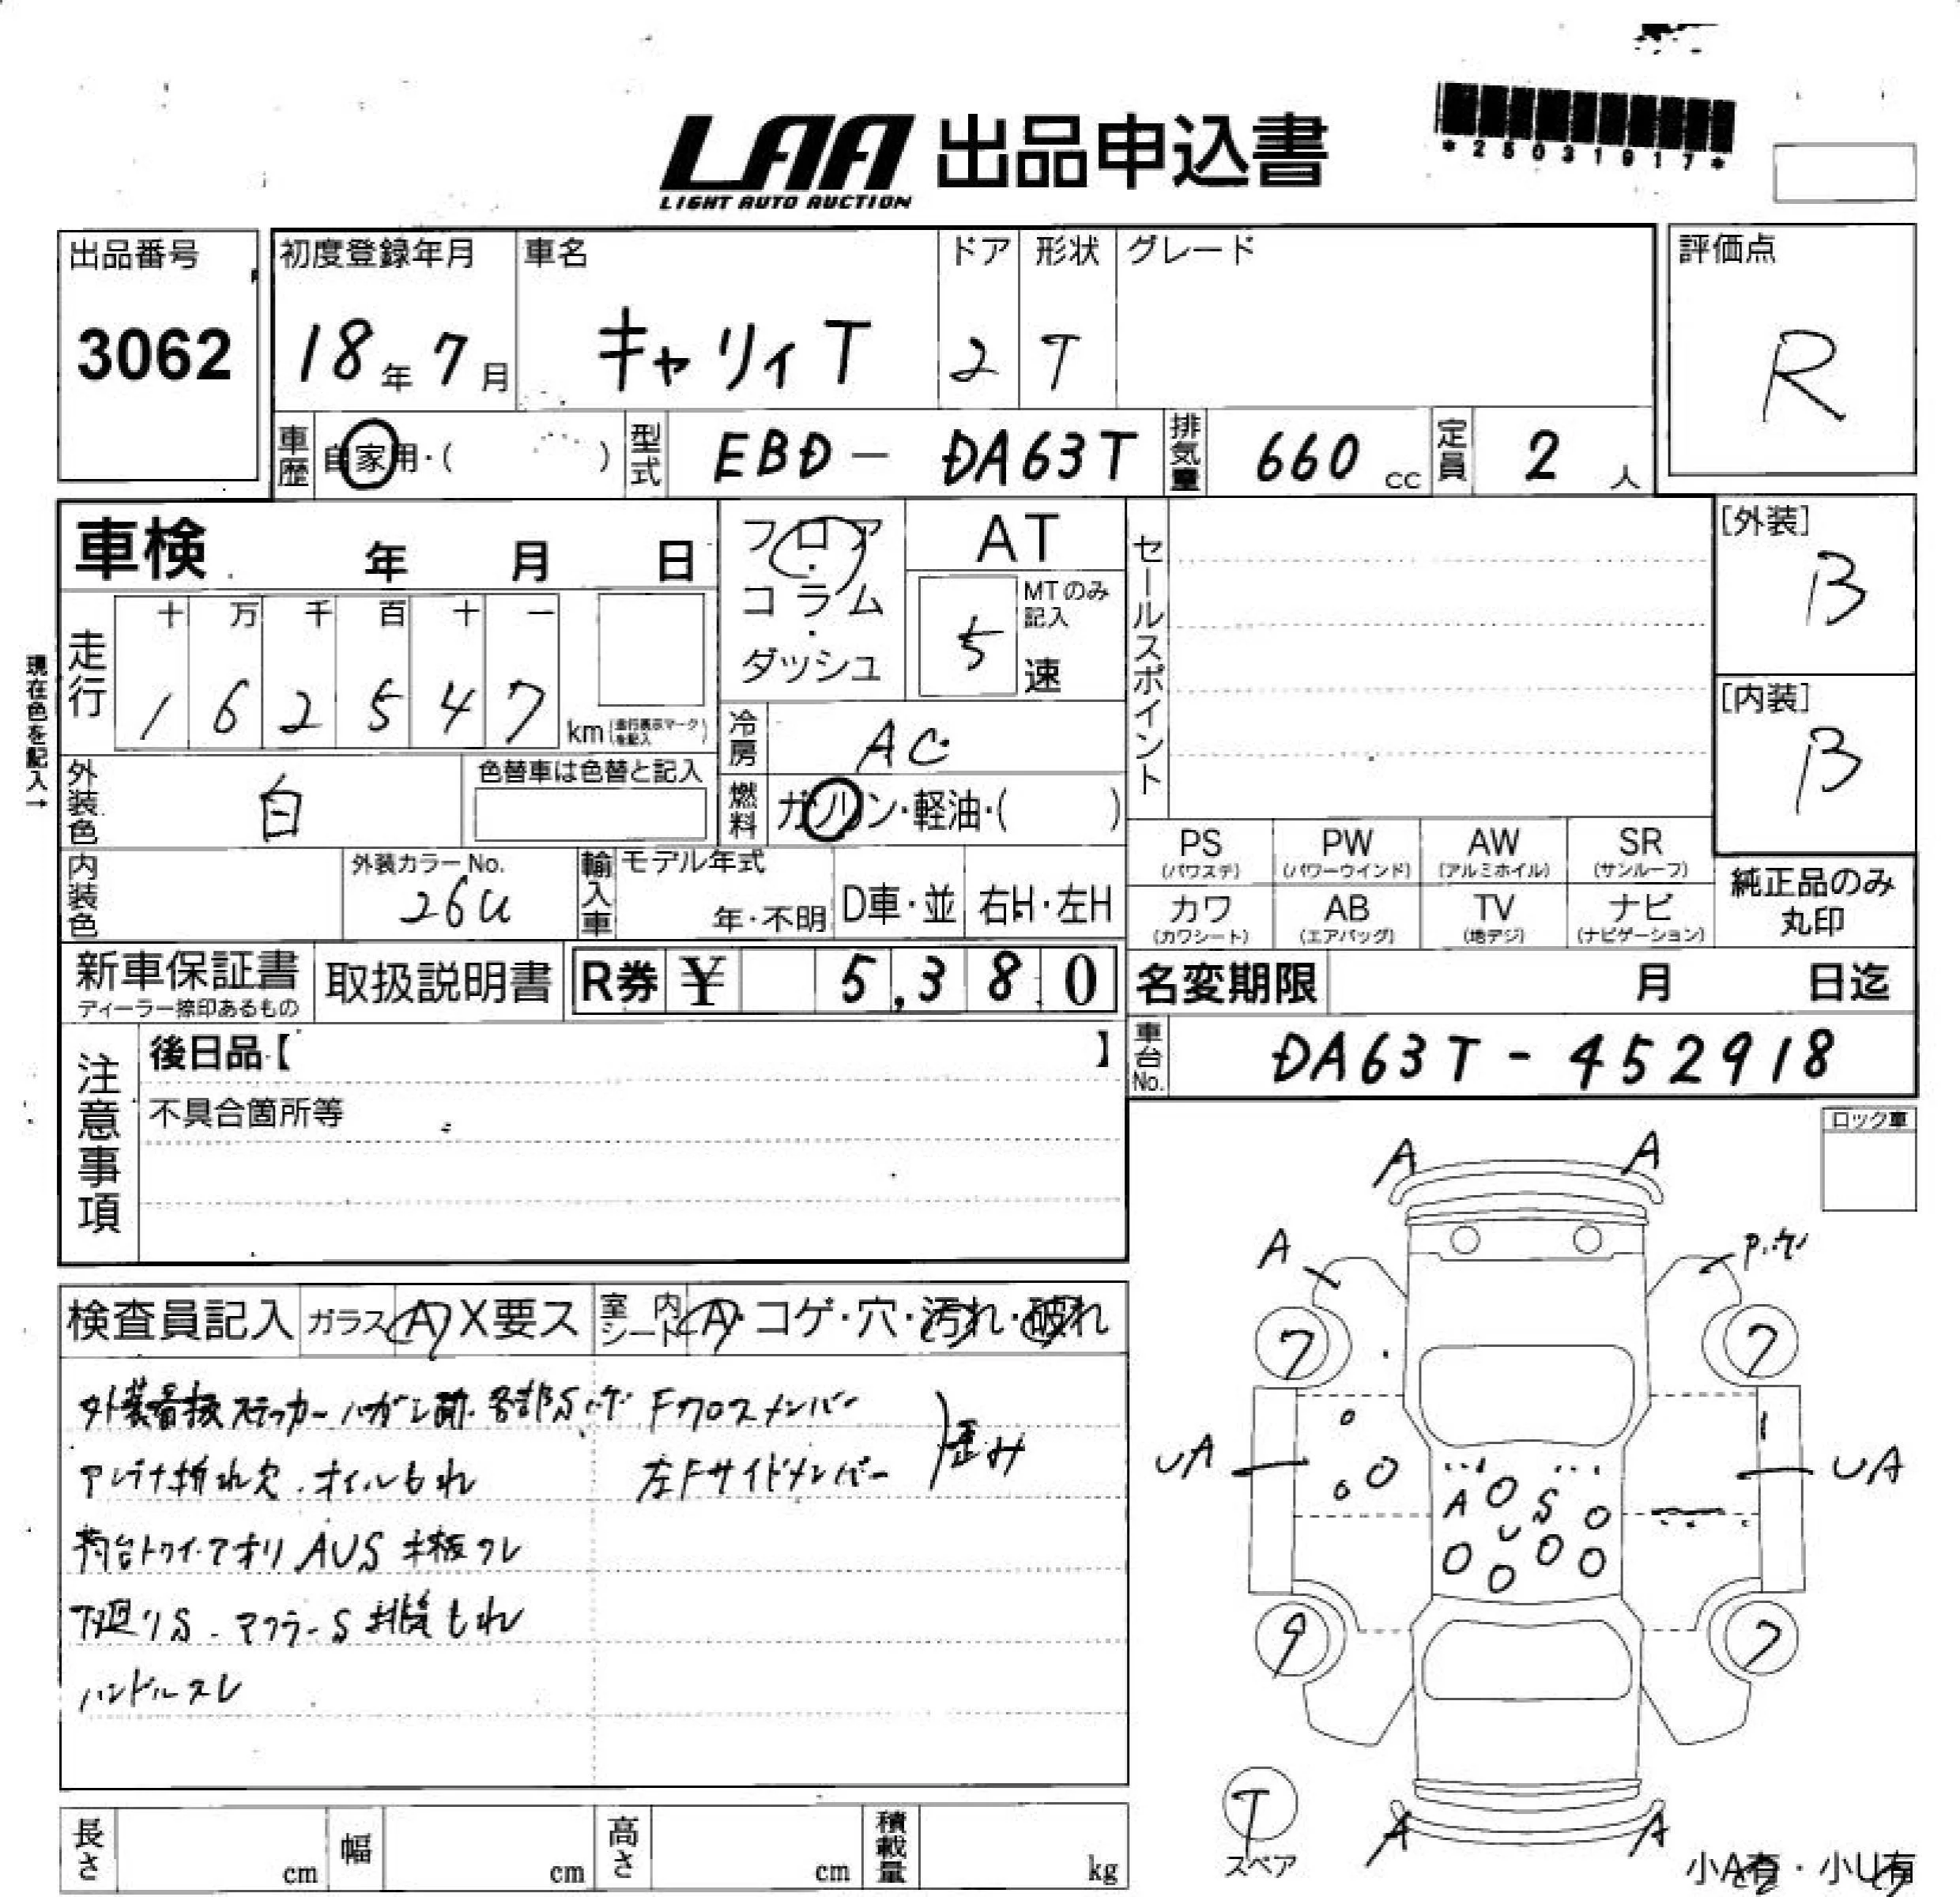 LAA 出品申込書
LIGHT AUTO AUCTION
*25031917*
出品番号
3062
初度登録年月
18年7月
車名
キャリィT
ドア
2
形状
T
グレード
評価点
R
車歴
自家用・( )
型式
EBD-DA63T
排気量
660 cc
定員
2 人
車検 年 月 日
フロア・コラム・ダッシュ
AT
MTのみ記入
5 速
セールスポイント
[外装]
B
[内装]
B
現在色を記入→
走行
十 万 千 百 十 一
1 6 2 5 4 7
km (走行表示マークを記入)
冷房
AC
外装色
白
色替車は色替と記入
燃料
ガソリン・軽油・( )
PS (パワステ)
PW (パワーウインド)
AW (アルミホイル)
SR (サンルーフ)
カワ (カワシート)
AB (エアバッグ)
TV (地デジ)
ナビ (ナビゲーション)
純正品のみ
丸印
内装色
外装カラーNo.
26U
輸入車
モデル年式
年・不明
D車・並
右H・左H
新車保証書
ディーラー捺印あるもの
取扱説明書
R券 ¥ 5,380
名変期限 月 日迄
車台No.
DA63T-452918
注意事項
後日品【 】
不具合箇所等
ロック車
検査員記入
ガラス A X要ス
室内シート A・コゲ・穴・汚れ・破れ
外装看板ステッカーハガシ跡 各部S
Fクロスメンバー
左Fサイドメンバー
歪み
アンテナ折れ欠 オイルもれ
荷台トリイ・アオリ AUS
下廻りS マフラーS 排気もれ
ハンドルスレ
A A
A
7 7
UA UA
A S
U
9 7
T
スペア
A A
小A有・小U有
長さ cm
幅 cm
高さ cm
積載量 kg